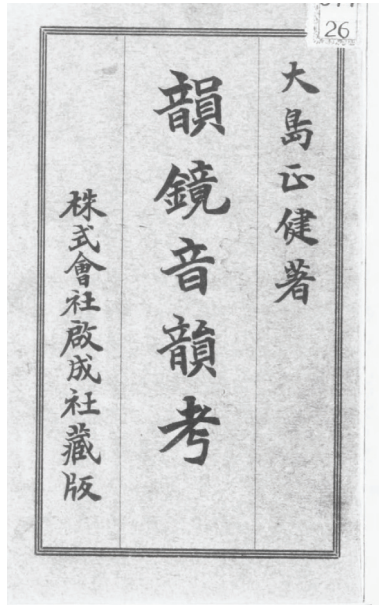 大島正健著
韻鏡音韻考
株式會社啟成社藏版
26